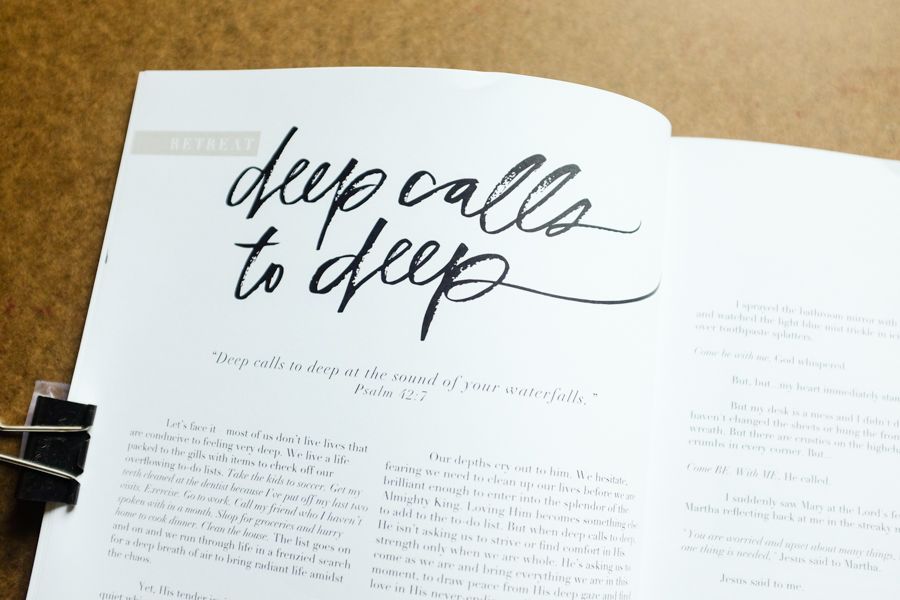 RETREAT
deep calls
to deep
"Deep calls to deep at the sound of your waterfalls."
Psalm 42:7
Let's face it most of us don't live lives that
are conducive to feeling very deep. We live a life
packed to the gills with items to check off our
overflowing to-do lists. Take the kids to soccer. Get my
teeth cleaned at the dentist because I've put off my last two
visits. Exercise. Go to work. Call my friend who I haven't
spoken with in a month. Shop for groceries and hurry
home to cook dinner. Clean the house. The list goes on
and on and we run through life in a frenzied search
for a deep breath of air to bring radiant life amidst
the chaos.
Yet, His tender
quiet
Our depths cry out to him. We hesitate,
fearing we need to clean up our lives before we are
brilliant enough to enter into the splendor of the
Almighty King. Loving Him becomes something else
to add to the to-do list. But when deep calls to deep,
He isn't asking us to strive or find comfort in His
strength only when we are whole. He's asking us to
come as we are and bring everything we are in this
moment, to draw peace from His deep gaze and find
love in His never-ending
I sprayed the bathroom mirror with
and watched the light blue mist trickle in
over toothpaste splatters.
Come be with me. God whispered.
But, but...my heart immediately
But my desk is a mess and I didn't
haven't changed the sheets or hung the
wreath. But there are crusties on the
crumbs in every corner. But...
Come BE. With ME. He called.
I suddenly saw Mary at the Lord's
Martha reflecting back at me in the streaky
"You are worried and upset about many things,
one thing is needed," Jesus said to Martha.
Jesus said to me.